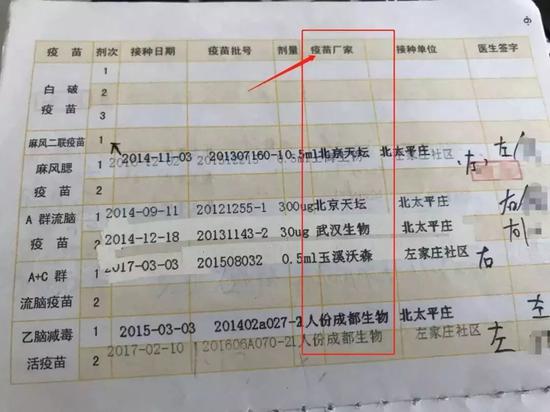 疫苗 剂次 接种日期 疫苗批号 剂量 疫苗厂家 接种单位 医生签字
白破疫苗 1
2
3
麻风二联疫苗 1
2014-11-03 201307160-1 0.5ml 北京天坛 北太平庄 左
麻风腮疫苗 1 左家庄社区 左
2
A 群流脑疫苗 1 2014-09-11 20121255-1 300ug 北京天坛 北太平庄 右
2 2014-12-18 20131143-2 30ug 武汉生物 北太平庄 右
A+C 群流脑疫苗 1 2017-03-03 201508032 0.5ml 玉溪沃森 左家庄社区 右
2
乙脑减毒活疫苗 1 2015-03-03 201402a027-2 1人份 成都生物 北太平庄 左
2 2017-02-10 201606A070-2 1人份 成都生物 左家庄社区 左